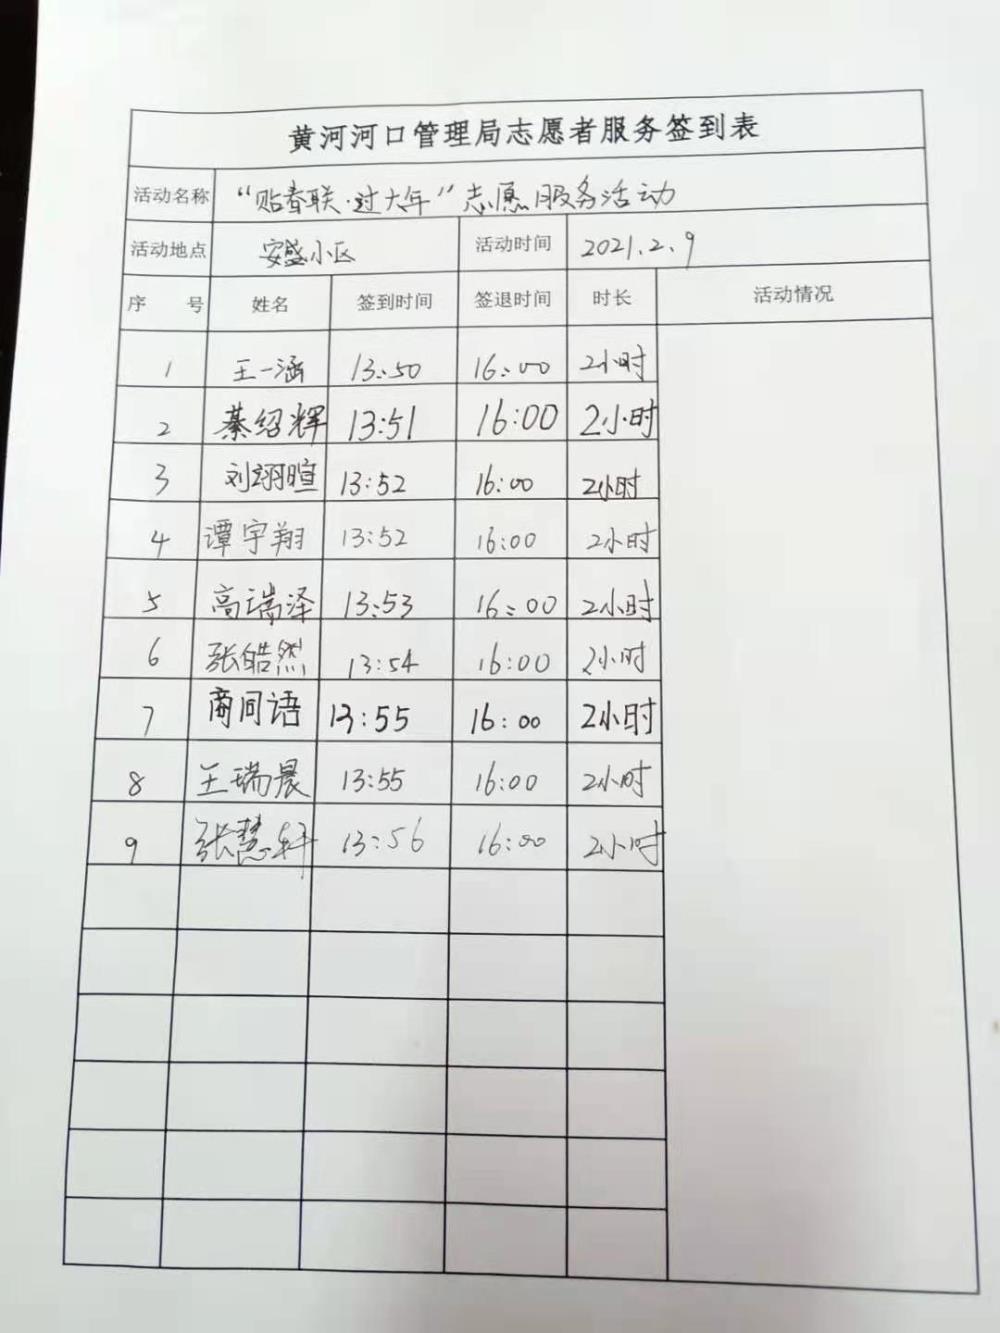 黄河河口管理局志愿者服务签到表
活动名称 “贴春联·过大年”志愿服务活动
活动地点 安盛小区 活动时间 2021.2.9
序 号 姓名 签到时间 签退时间 时长 活动情况
1 王一涵 13:50 16:00 2小时
2 綦绍辉 13:51 16:00 2小时
3 刘翊暄 13:52 16:00 2小时
4 谭宇翔 13:52 16:00 2小时
5 高瑞泽 13:53 16:00 2小时
6 张皓然 13:54 16:00 2小时
7 商间语 13:55 16:00 2小时
8 王瑞晨 13:55 16:00 2小时
9 张慧轩 13:56 16:00 2小时